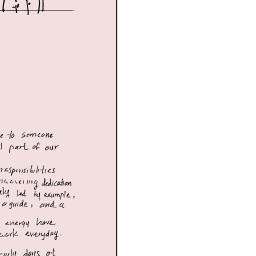 e to someone
l part of our
responsibilities
unwavering dedication
ly led by example,
a guide, and a
energy have
work everyday.
days at